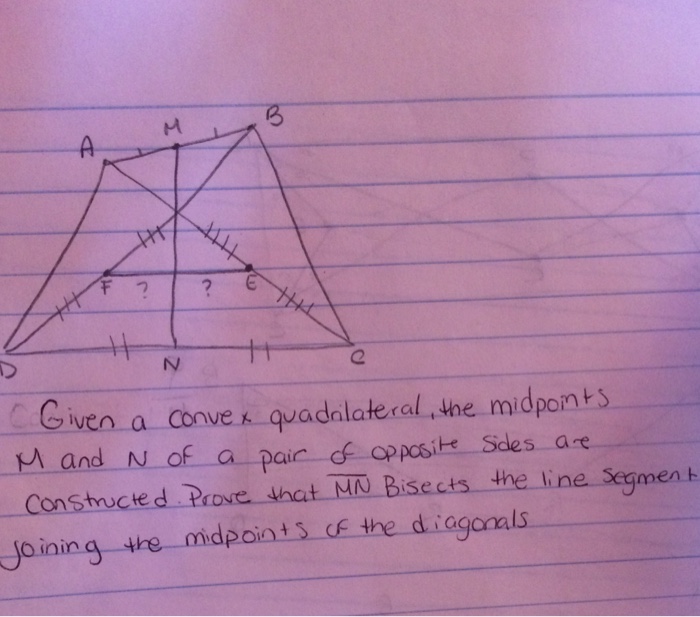 B
M
A
F ? ? E
D N C
Given a convex quadrilateral, the midpoints
M and N of a pair of opposite sides are
constructed. Prove that MN Bisects the line segment
joining the midpoints of the diagonals